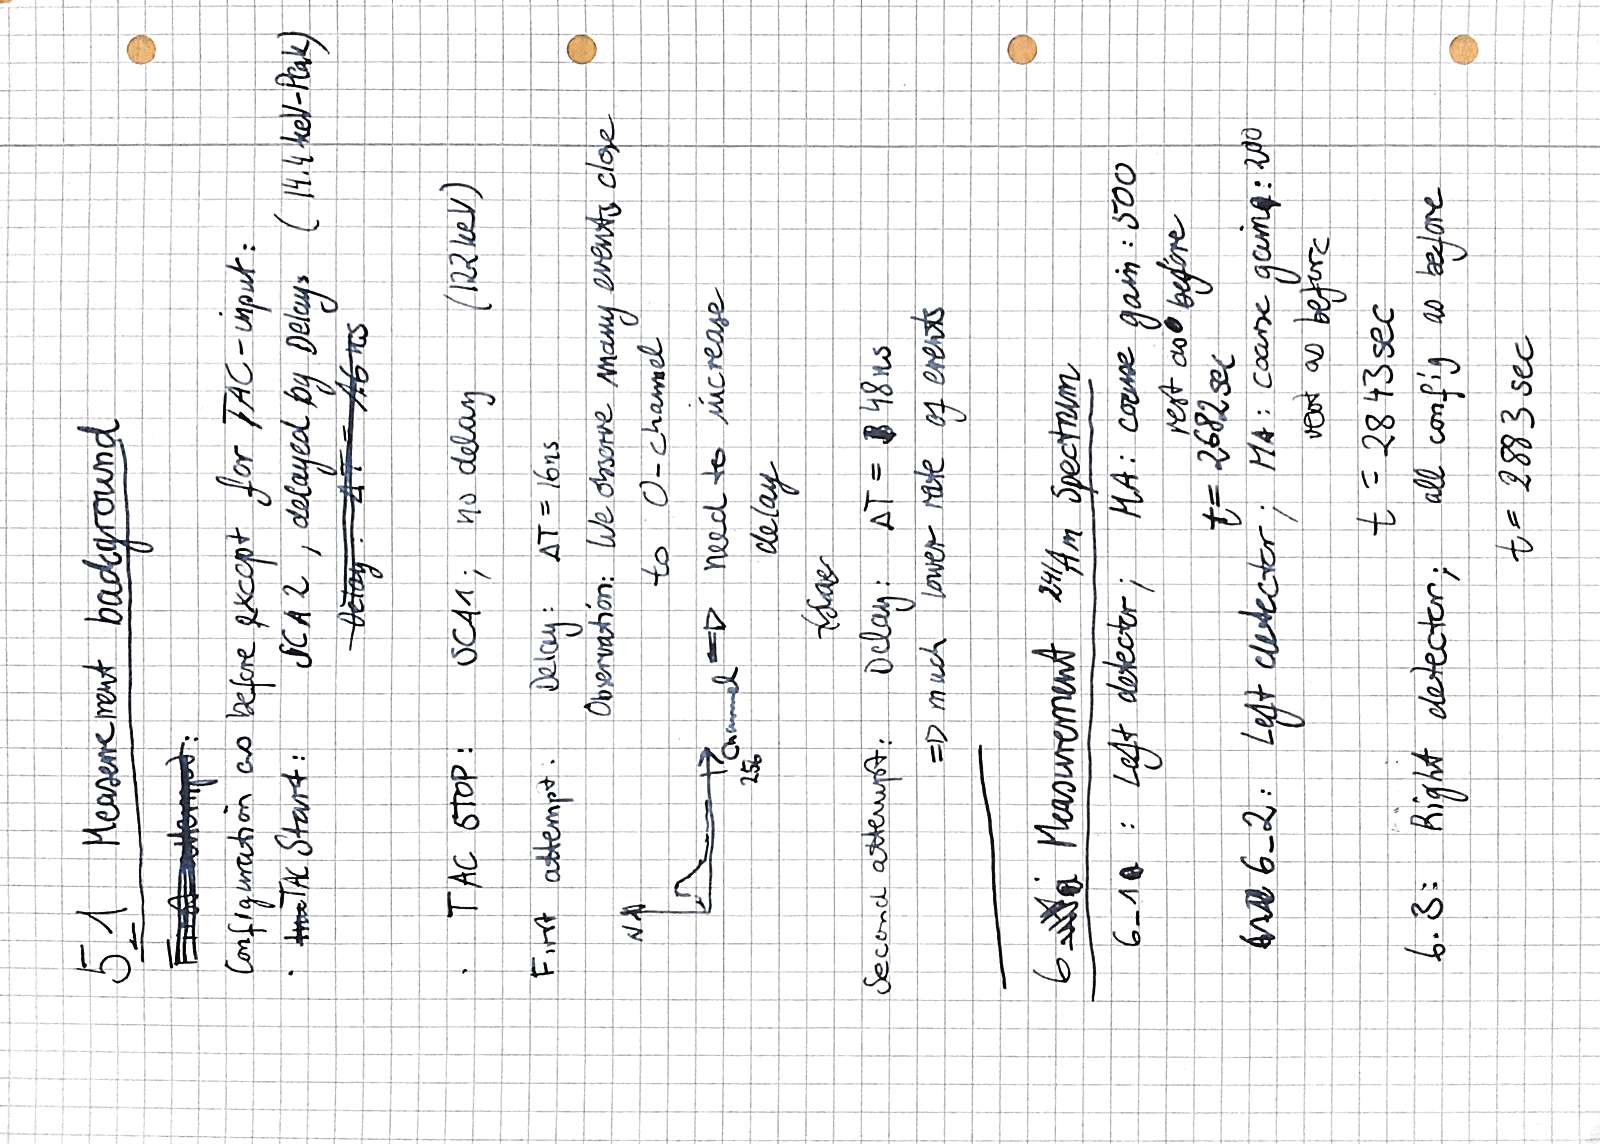 5_1 Measurement background
Configuration as before except for TAC-input:
· TAC Start: SCA 2, delayed by Delays (14.4 keV-Peak)
Delay: ΔT = 16 ns
· TAC STOP: SCA1; no delay (122 keV)
First attempt: Delay: ΔT = 16 ns
Observation: We observe many events close
to 0-channel
N
256
Channel
=D need to increase
delay
Second attempt: Delay: ΔT = 48 ns
=D much lower rate of events
6 Measurement ²⁴¹Am Spectrum
6_1: Left detector; MA: coarse gain: 500
rest as before
t = 2682 sec
6_2: Left detector; MA: coarse gaing: 200
rest as before
t = 2843 sec
6.3: Right detector; all config as before
t = 2883 sec